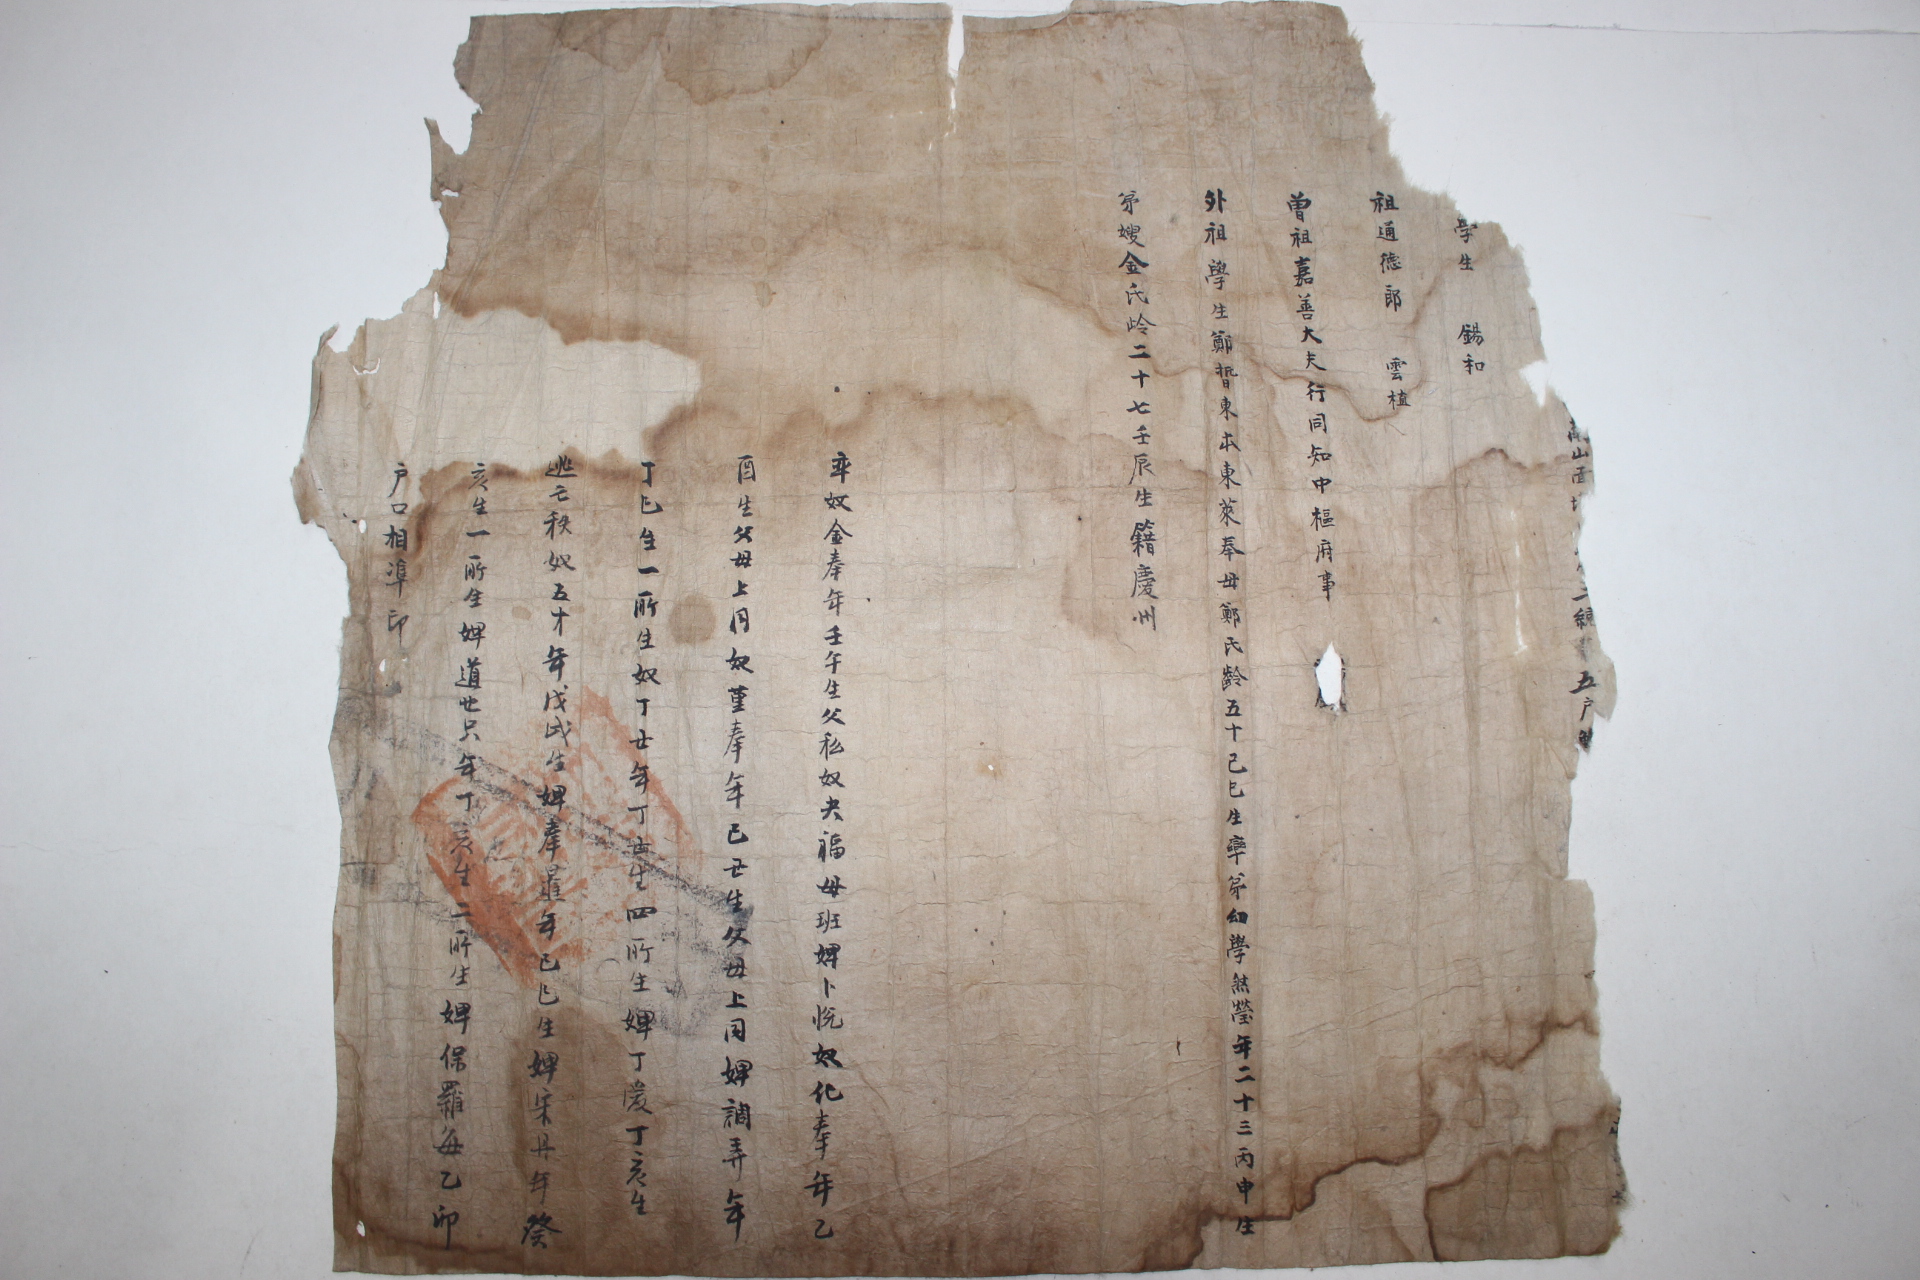 山面 三統 五戶
學生 錫和
祖通德郎 雲植
曾祖嘉善大夫行同知中樞府事
外祖學生鄭 東本東萊奉母鄭氏齡五十己巳生率弟幼學 瑩年二十三丙申生
弟嫂金氏齡二十七壬辰生籍慶州
率奴金奉年壬午生父私奴夫福母班婢卜悅奴化奉年乙
酉生父母上同奴堇奉年己丑生父母上同婢調弄年
丁巳生一所生奴丁丑年丁丑生四所生婢丁愛丁亥生
逃亡秩奴五才年戊戌生婢奉暹年己巳生婢宋丹年癸
亥生一所生婢道也只年丁亥生二所生婢保羅每乙卯
戶口相準印